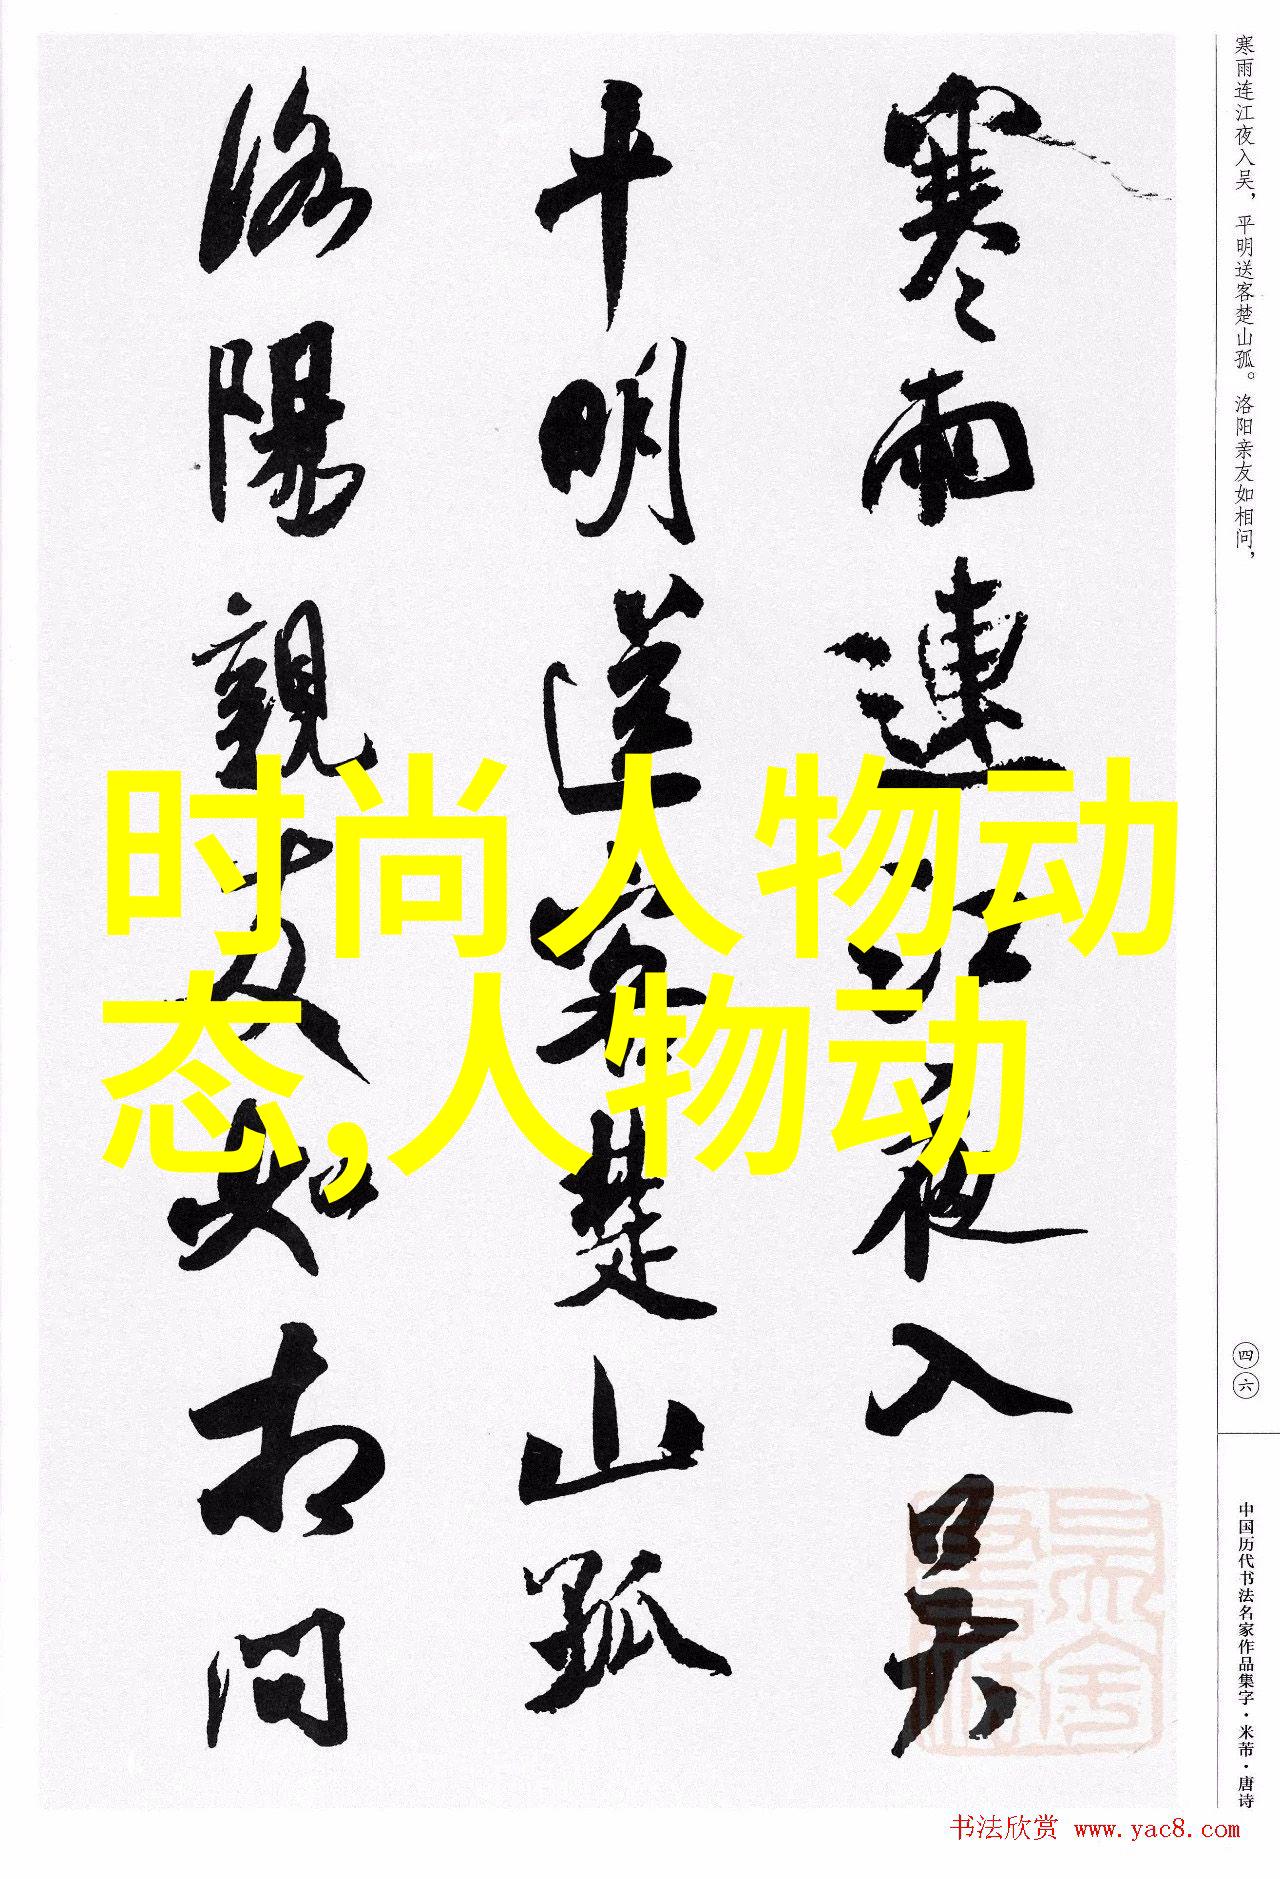 寒雨连江夜入吴，平明送客楚山孤。洛阳亲友如相问，
四六
中国历代书法名家作品集字·米芾·唐诗
寒雨連江夜入吴
平明送客楚山孤
洛陽親友如相問
时尚人物动
态,人物动
书法欣赏 www.yac8.com